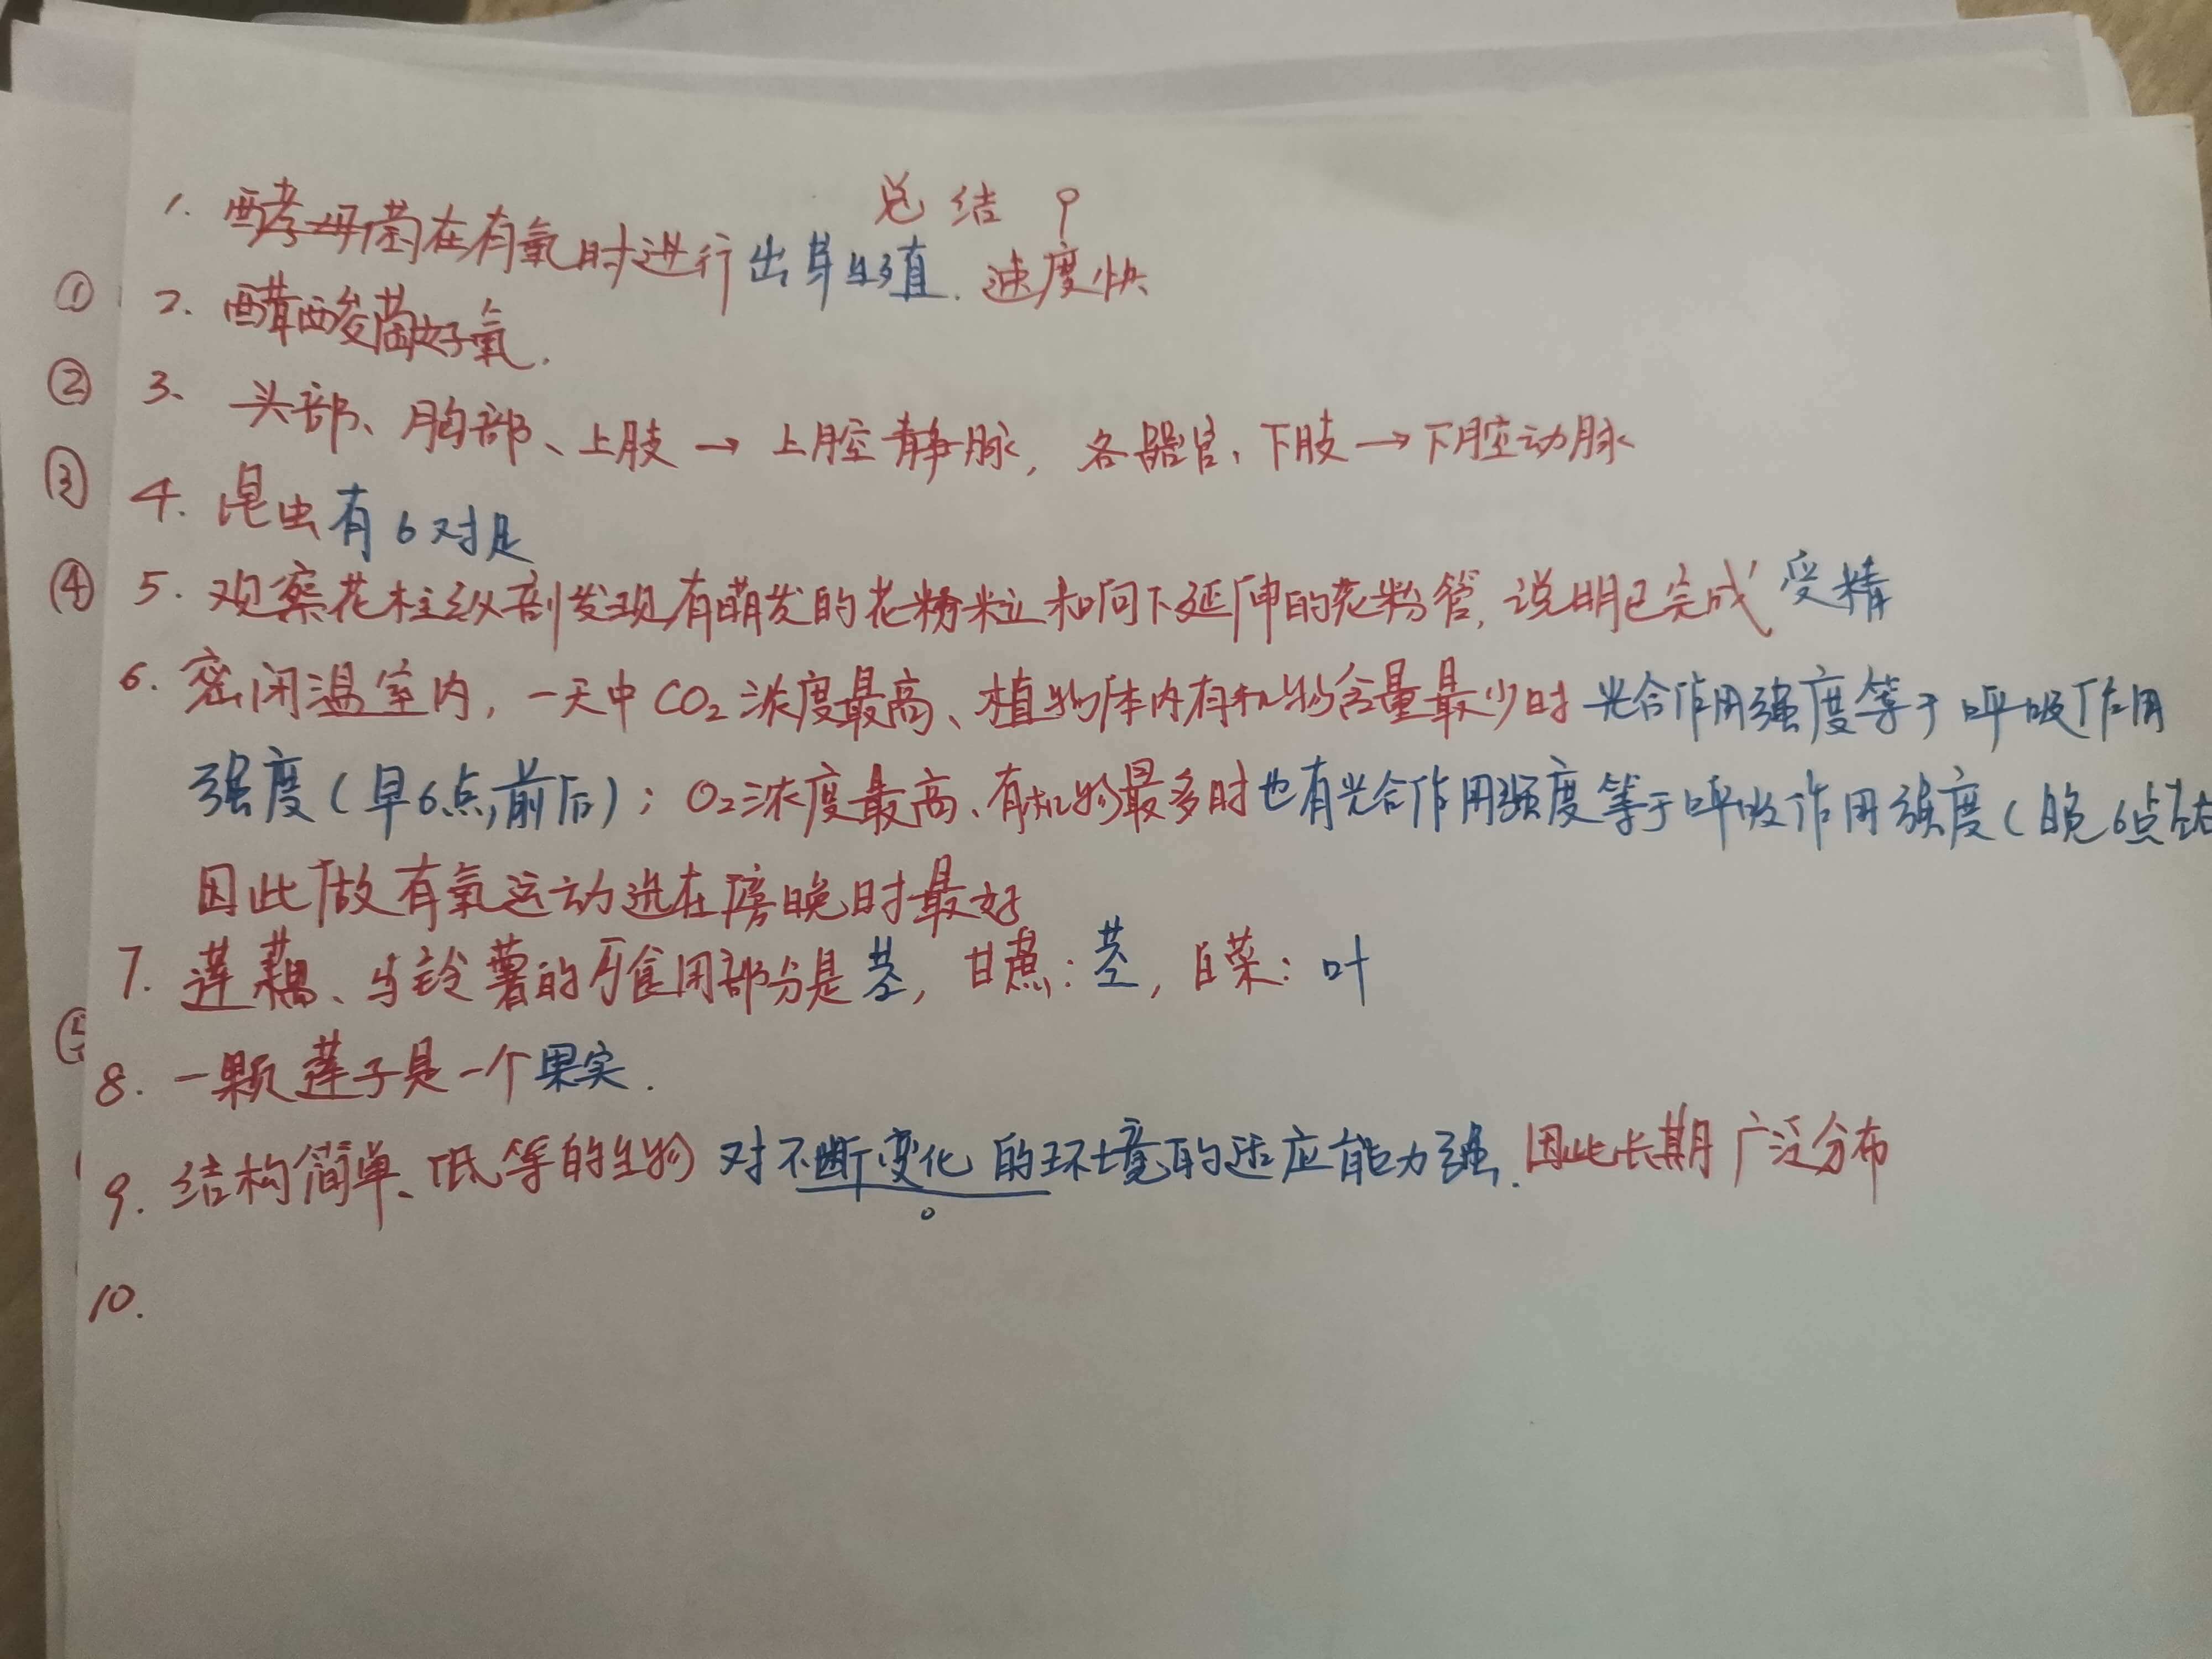 总结
1. 酵母菌在有氧时进行出芽生殖. 速度快
① 2. 醋酸菌好氧.
② 3、头部、胸部、上肢→上腔静脉, 各器官、下肢→下腔动脉
③ 4. 昆虫有6对足
④ 5. 观察花柱纵剖发现有萌发的花粉粒和向下延伸的花粉管, 说明已完成受精
6. 密闭温室内, 一天中CO₂浓度最高、植物体内有机物含量最少时光合作用强度等于呼吸作用
强度(早6点前后); O₂浓度最高、有机物最多时也有光合作用强度等于呼吸作用强度(晚6点左
因此做有氧运动选在傍晚时最好
7. 莲藕、马铃薯的可食用部分是茎, 甘蔗: 茎, 白菜: 叶
⑤
8. 一颗莲子是一个果实.
9. 结构简单、低等的生物对不断变化的环境的适应能力强. 因此长期广泛分布
10.